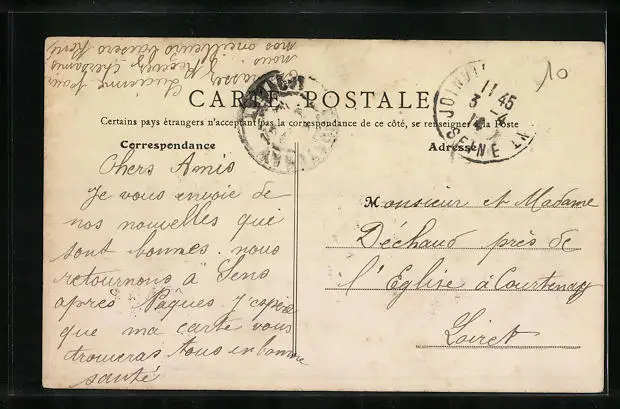 CARTE POSTALE
Certains pays étrangers n'acceptant pas la correspondance de ce côté, se renseigner à la Poste
Correspondance
Chers Amis
Je vous envoie de
nos nouvelles qui
sont bonnes. nous
retournons à Sens
après Pâques. J'espère
que ma carte vous
trouveras tous en bonne
santé
embrasser Lucienne pour
nous. Recevez chers amis
nos meilleurs baisers
Adresse
Monsieur et Madame
Déchaud près de
l'Eglise à Courtenay
Loiret
JOINVI
11 45
3 -4
SEINE
10